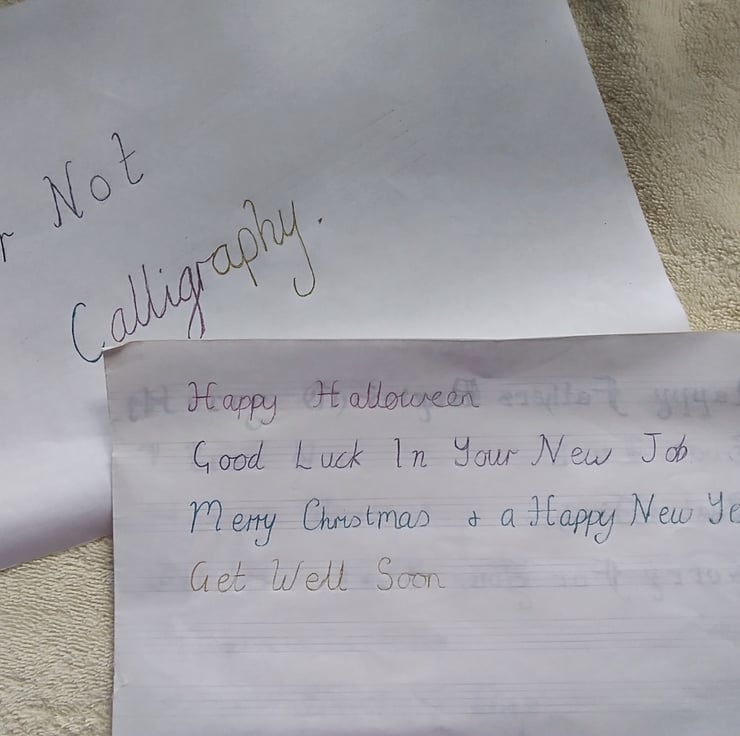 Not
Calligraphy.
Happy Halloween
Good Luck In Your New Job
Merry Christmas & a Happy New Ye
Get Well Soon